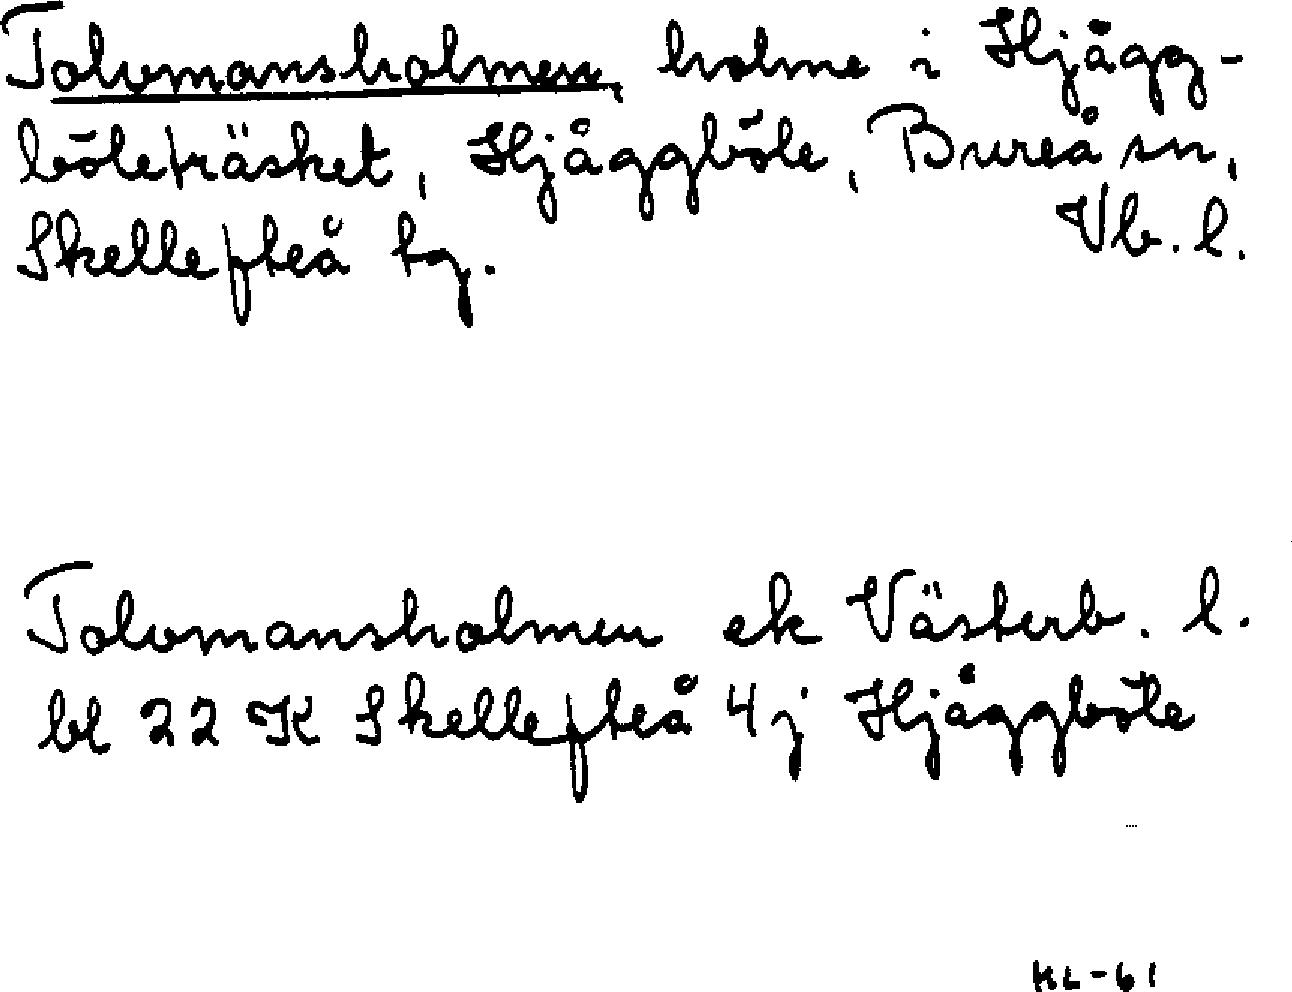 Tolvmansholmen, holme i Hjågg-
böleträsket, Hjåggböle, Bureå sn,
Skellefteå tg. Vb. l.
Tolvmansholmen ek Västerb. l.
bl 22 K Skellefteå 4j Hjåggböle
KL-61